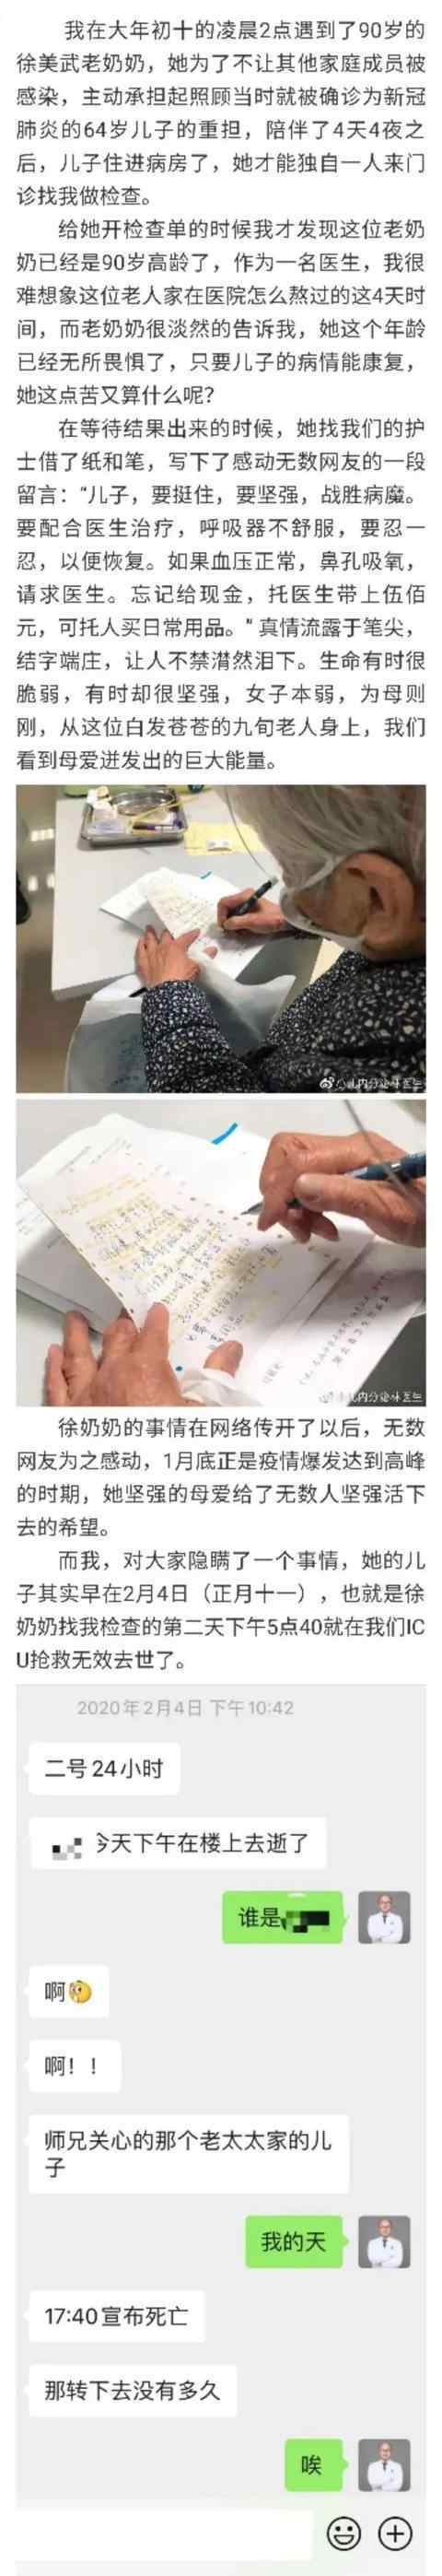 我在大年初十的凌晨2点遇到了90岁的
徐美武老奶奶，她为了不让其他家庭成员被
感染，主动承担起照顾当时就被确诊为新冠
肺炎的64岁儿子的重担，陪伴了4天4夜之
后，儿子住进病房了，她才能独自一人来门
诊找我做检查。
给她开检查单的时候我才发现这位老奶
奶已经是90岁高龄了，作为一名医生，我很
难想象这位老人家在医院怎么熬过的这4天时
间，而老奶奶很淡然的告诉我，她这个年龄
已经无所畏惧了，只要儿子的病情能康复，
她这点苦又算什么呢？
在等待结果出来的时候，她找我们的护
士借了纸和笔，写下了感动无数网友的一段
留言：“儿子，要挺住，要坚强，战胜病魔。
要配合医生治疗，呼吸器不舒服，要忍一
忍，以便恢复。如果血压正常，鼻孔吸氧，
请求医生。忘记给现金，托医生带上伍佰
元，可托人买日常用品。”真情流露于笔尖，
结字端庄，让人不禁潸然泪下。生命有时很
脆弱，有时却很坚强，女子本弱，为母则
刚，从这位白发苍苍的九旬老人身上，我们
看到母爱迸发出的巨大能量。
徐奶奶的事情在网络传开了以后，无数
网友为之感动，1月底正是疫情爆发达到高峰
的时期，她坚强的母爱给了无数人坚强活下
去的希望。
而我，对大家隐瞒了一个事情，她的儿
子其实早在2月4日（正月十一），也就是徐
奶奶找我检查的第二天下午5点40就在我们IC
U抢救无效去世了。
2020年2月4日 下午10:42
二号24小时
今天下午在楼上去逝了
谁是
啊
啊！！
师兄关心的那个老太太家的儿
子
我的天
17:40宣布死亡
那转下去没有多久
唉